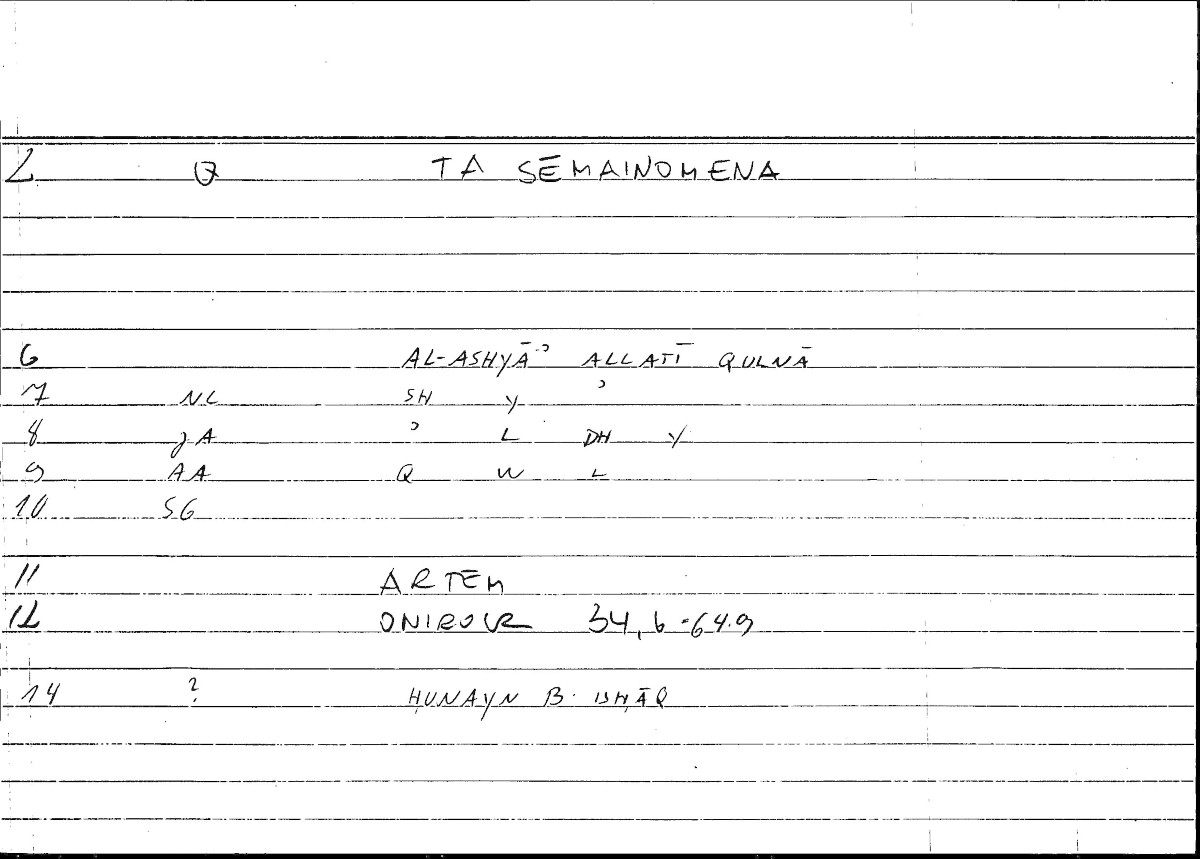 2 Q TA SĒMAINOMENA
6 AL-ASHYĀʾ ALLATĪ QULNĀ
7 NL SH Y ʾ
8 JA ʾ L DH Y
9 AA Q W L
10 SG
11 ARTEM
12 ONIROCR 34,6-64.9
14 ? ḤUNAYN B. ISḤĀQ